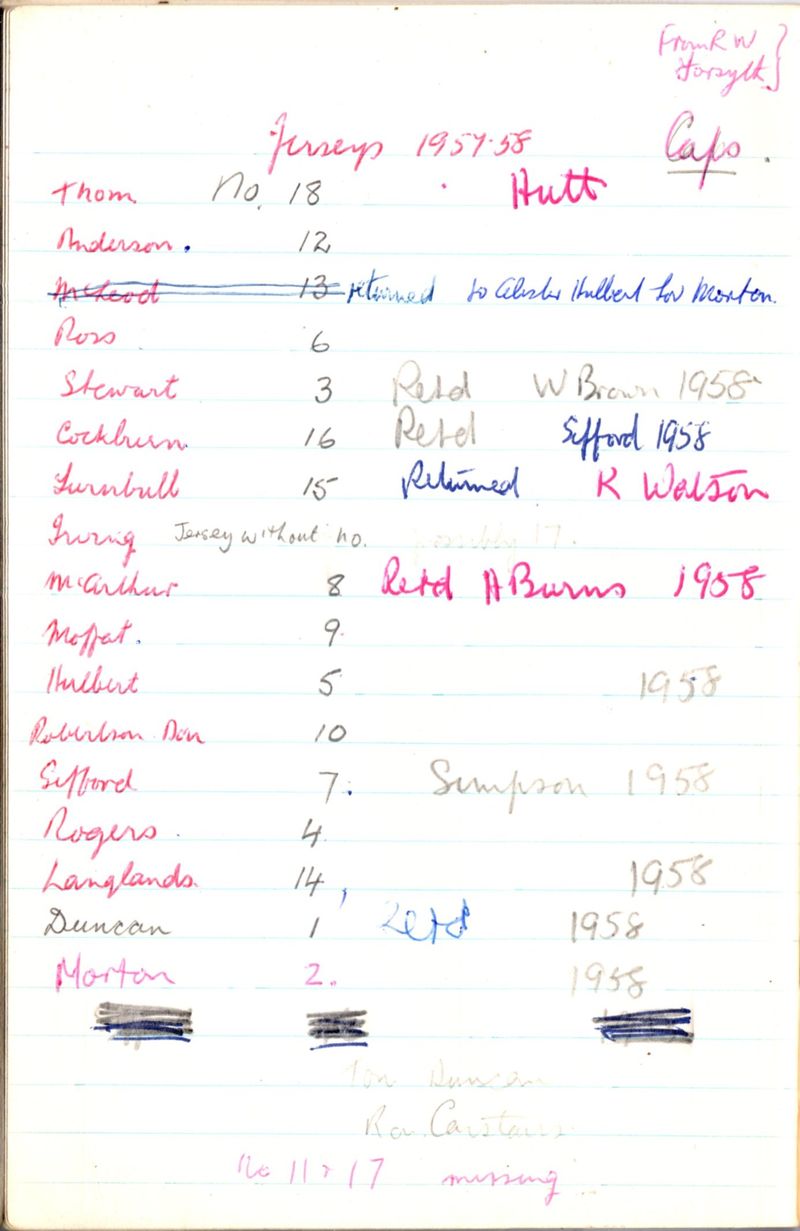 From R W
Forsyth }
Jerseys 1957-58 Caps.
Thom. No. 18 Hutt
Anderson. 12
McLeod 13 returned to Alister Hulbert for Morton.
Ross 6
Stewart 3 Retd W Brown 1958
Cockburn. 16 Retd Gifford 1958
Turnbull 15 Returned K Watson
Irving Jersey without no. possibly 17.
McArthur 8 Retd A Burns 1958
Moffat. 9.
Hulbert 5 1958
Robertson Don 10
Gifford 7. Simpson 1958
Rogers. 4
Langlands. 14, 1958
Duncan 1 Retd 1958
Morton 2. 1958
Duncan
Carstairs
No 11 & 17 missing